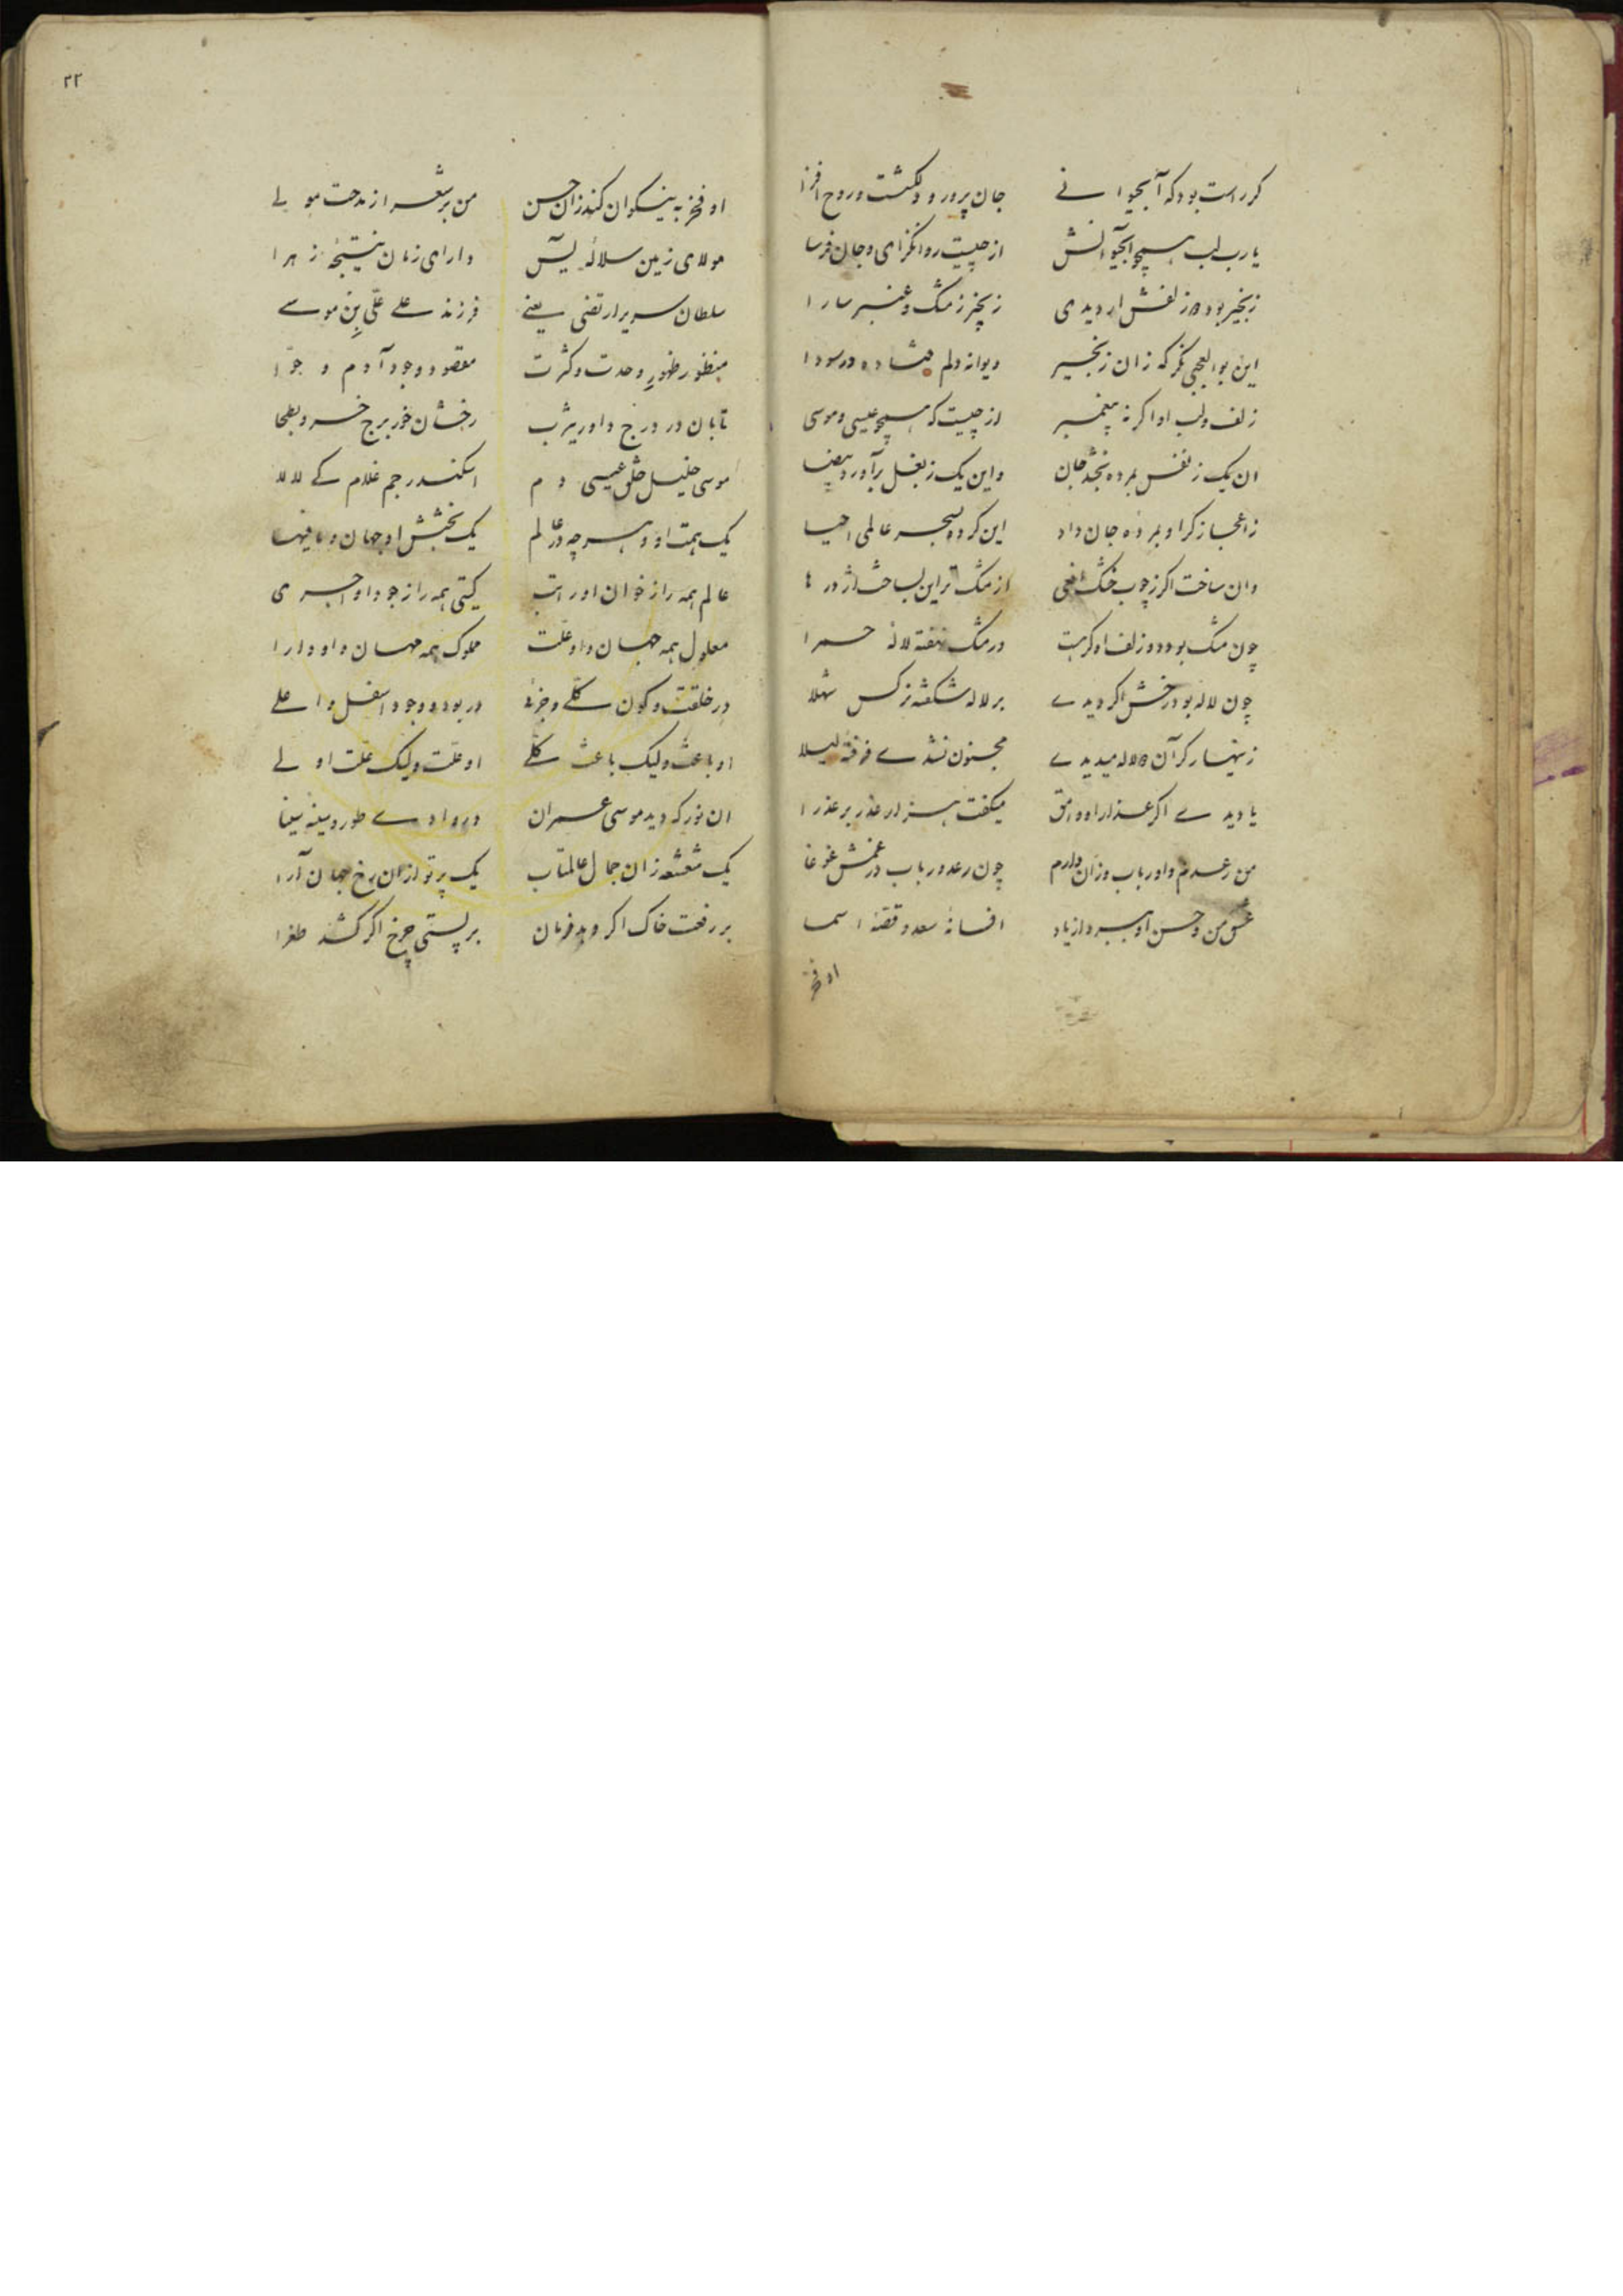 کر راست بود که آبحیوانے جان پرور و دلکشت و روح افزا
یارب لب همچو آبحیوانش از چیست روانکزای و جان فرسا
زنجیر بود دو زلفش ار دیدی زنجیر ز مشک و عنبر سارا
این بوالعجبی نکر که زان زنجیر دیوانه دلم فتاده در سودا
زلف و لب او اکر نه پیغمبر از چیست که همچو عیسی و موسی
ان یک ز نفس بمرده بخشد جان و این یک ز بغل برآورد بیضا
ز اعجاز کر او بمرده جان داد این کرده بسحر عالمی احیا
وان ساخت اکر ز چوب خشک افعی از مشک تر این بساخت اژدرها
چون مشک بود دو زلف او کر هست در مشک نهفته لالهٔ حمرا
چون لاله بود رخش اکر دیدے بر لاله شکفته نرکس شهلا
زینهار کر آن لاله میدیدے مجنون نشدے فرفتهٔ لیلا
یا دیدے اکر عذار او وامق میکفت هزار عذر بر عذرا
من رعدم و او رباب وزان دارم چون رعد و رباب در غمش غوغا
عشق من و حسن او ببرد از یاد افسانهٔ سعد و قصهٔ اسما
او فخر
۲۲
او فخر به نیکوان کند زان حسن من بر شعرا ز مدحت مولے
مولای زمین سلالهٔ یٓس دارای زمان نتیجهٔ زهرا
سلطان سریر ارتضی یعنے فرزند علے علی بن موسے
منظور ظهور وحدت و کثرت مقصود وجود آدم و حوّا
تابان در درج داور یثرب رخشان خور برج خسرو بطحا
موسی خلیل خلق عیسی دم اسکندر جم غلام کے لالا
یک همت او و هر چه در عالم یک بخشش او جهان و مافیها
عالم همه را ز خوان او راتب کیتی همه را ز جود او اجری
معلول همه جهان و او علّت مملوک همه مهان و او دارا
در خلقت و کون کلّے و جزئے در بود و وجود اسفل و اعلے
او باعث و لیک باعث کلّے او علّت و لیک علّت اولے
ان نور که دید موسی عمران در وادے طور و سینهٔ سینا
یک شعشعه زان جمال عالمتاب یک پرتو ازان رخ جهان آرا
بر رفعت خاک اکر دهد فرمان بر پستی چرخ اکر کشد طغرا